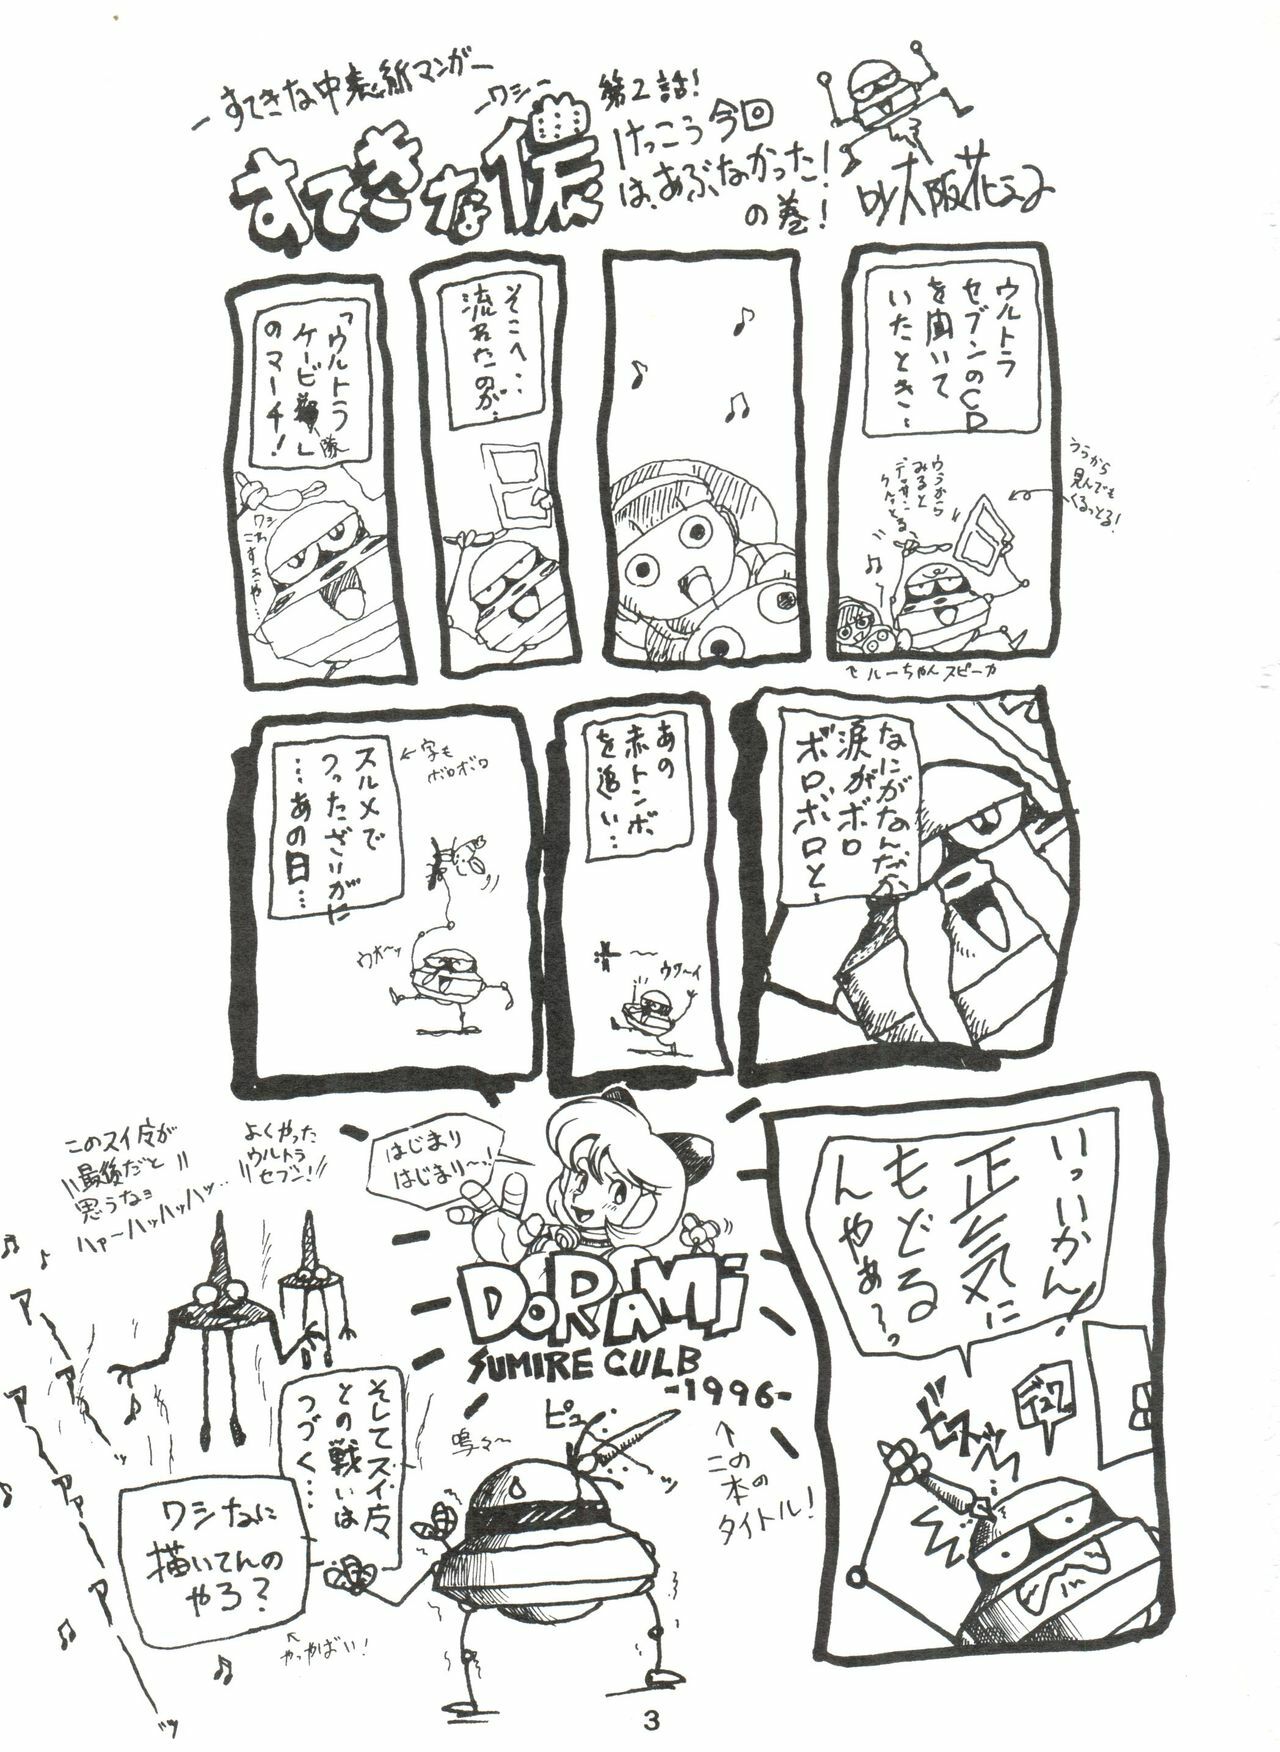 ーすてきな中表紙マンガー
ーワシー
すてきな儂
第2話!
けっこう今回
は、あぶなかった!
の巻!
by大阪花子
ウルトラ
セブンのCD
を聞いて
いたとき…
うらから
見んでも
くるっとる!
ウラから
みると
デッサン
クルッとる
♪
でルーちゃんスピーカ
♪
♪
♫
そこへ‥
流れたのが…
「ウルトラ
ケービ隊」
のマーチ!
ワシ
こすちゃ…
なにがなんだか
涙がボロ
ボロボロと…
あの
赤トンボ
を追い…
ウワ〜イ
スルメで
つったざりがに
…あの日…
←字も
ボロボロ
ウオ〜ッ
いっいかん!
正気に
もどる
んやぁ〜っ
デュワ
ビスッッ
はじまり
はじまり〜!
DORAMi
SUMIRE CULB
-1996-
↑この
本の
タイトル!
よくやった
ウルトラ
セブン!!
このスイ星が
最後だと
思うなョ
ハァ〜ハッハッハッ…
そしてスイ星
との戦いは
つづく…
鳴々〜
ピュー
ッ
ワシなに
描いてんの
やろ?
やっやばい!
アーーーッ
アーアーアアアーーーッ
3